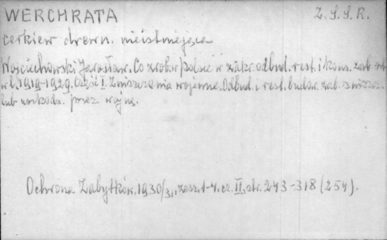 WERCHRATA
Z.S.S.R.
cerkiew drewn. nieistniejąca
Wojciechowski Jarosław. Co zrobiła Polska w zakr. odbud. rest. i kons. zab. szt.
w l. 1919-1929. Część I. Zniszczenia wojenne. Odbud. i rest. budow. zab. zniszcz.
lub uszkodz. przez wojnę.
Ochrona Zabytków. 1930/31, zeszyt 4. cz. II, str. 243-318 (254).